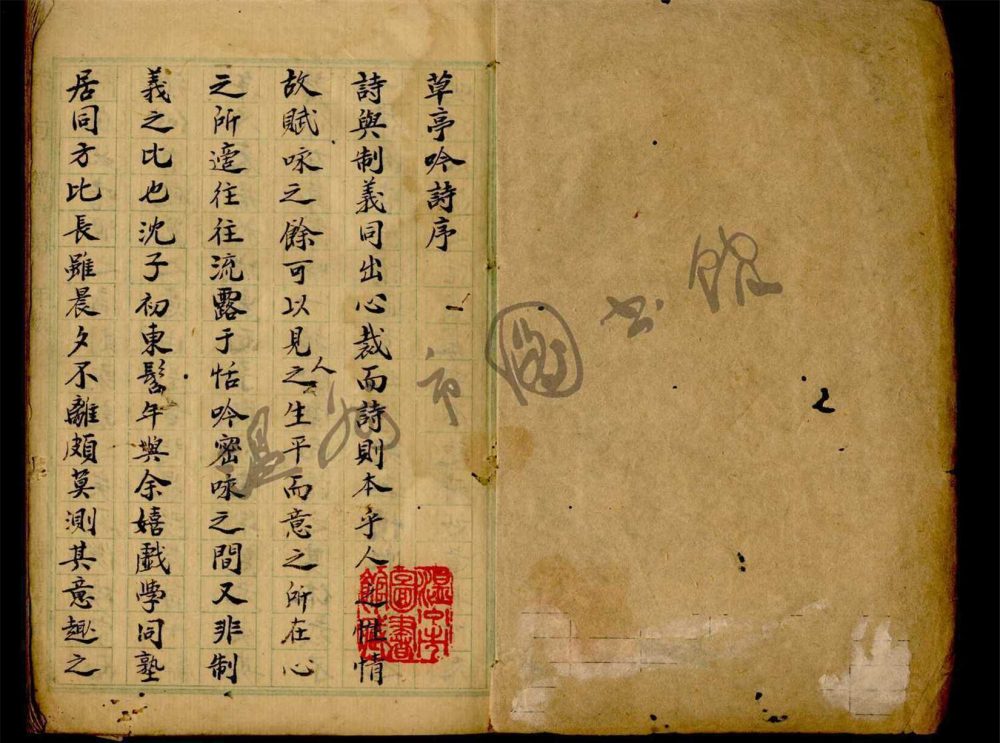 草亭吟詩序
詩與制義同出心裁而詩則本乎人之性情
故賦咏之餘可以見之人生平而意之所在心
之所適往往流露于恬吟密咏之間又非制
義之比也沈子初東髫年與余嬉戲學同塾
居同方比長雖晨夕不離頗莫測其意趣之
温州市圖書館
温州市圖書館藏